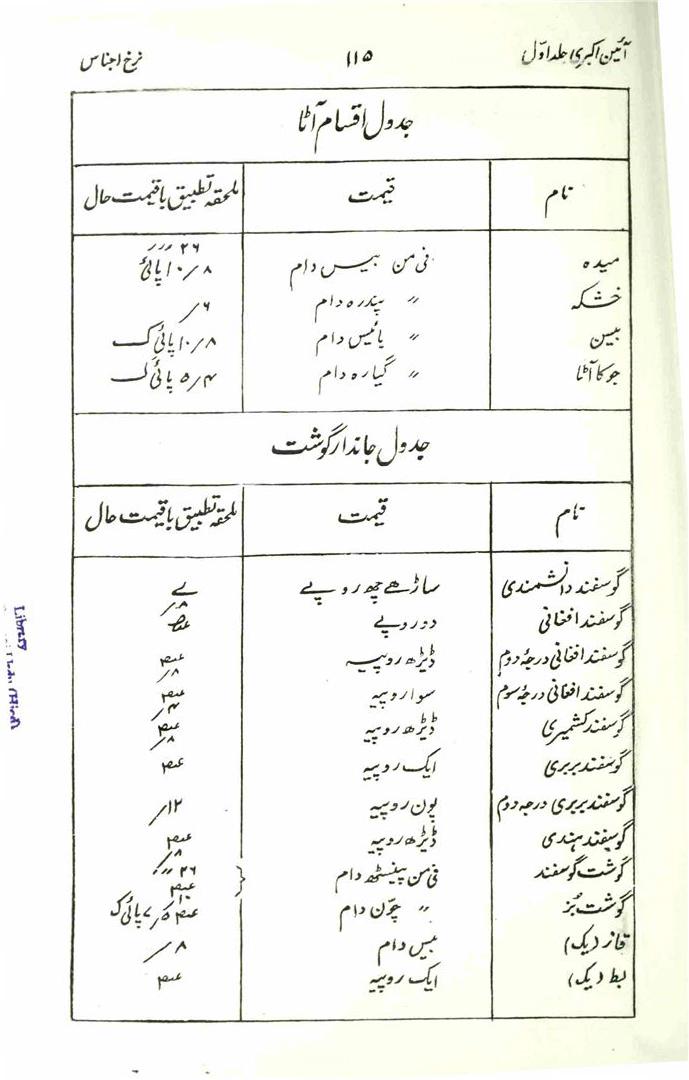 آئین اکبری جلد اوّل ۱۱۵ نرخ اجناس
جدول اقسام آٹا
نام قیمت ملحقہ تطبیق با قیمت حال
میدہ فی من بیس دام ۲۶ /۸ ۱۰ پائی
خشکہ 〃 پندرہ دام /۶
بیسن 〃 بائیس دام /۸ ۱۰ پائی
جو کا آٹا 〃 گیارہ دام /۴ ۵ پائی
جدول جاندار گوشت
نام قیمت ملحقہ تطبیق با قیمت حال
گوسفند دانشمندی ساڑھے چھ روپے /۸
گوسفند افغانی دو روپے
گوسفند افغانی درجۂ دوم ڈیڑھ روپیہ /۸
گوسفند افغانی درجۂ سوم سوا روپیہ /۴
گوسفند کشمیری ڈیڑھ روپیہ /۸
گوسفند بربری ایک روپیہ
گوسفند بربری درجہ دوم پون روپیہ /۱۲
گوسفند ہندی ڈیڑھ روپیہ /۸
گوشت گوسفند فی من پینسٹھ دام ۲۶
گوشت بُز 〃 چوّن دام
قاز (یک) بیس دام /۸
بط (یک) ایک روپیہ
Library